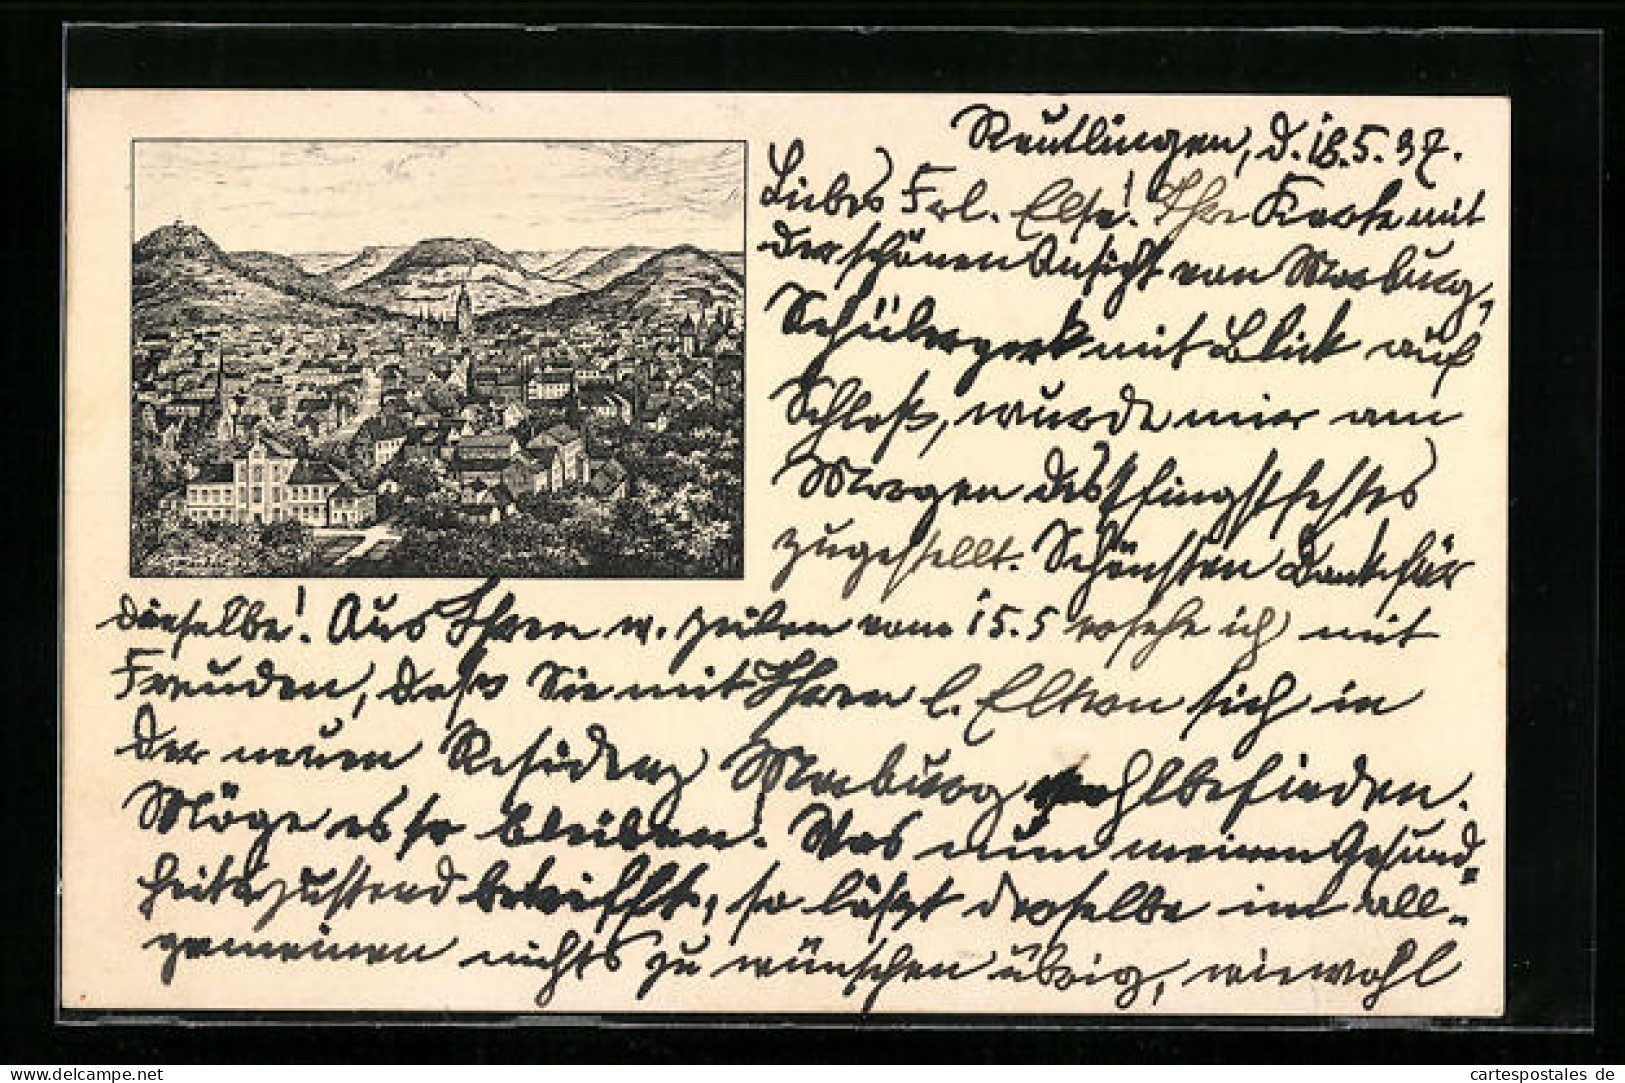 Reutlingen, d. 18.5.37.
Liebes Frl. Else! Ihre Karte mit
der schönen Ansicht von Marburg,
Schülerpark mit Blick auf
Schloß, wurde mir am
Morgen des Pfingstfestes
zugestellt. Schönsten Dank für
dieselbe! Aus Ihren w. Zeilen vom 15.5 ersehe ich mit
Freuden, dass Sie mit Ihren l. Eltern sich in
der neuen Residenz Marburg wohlbefinden.
Möge es so bleiben! Was nun meinen Gesund=
heitszustand betrifft, so lässt derselbe im all=
gemeinen nichts zu wünschen übrig, wiewohl
cartespostales de